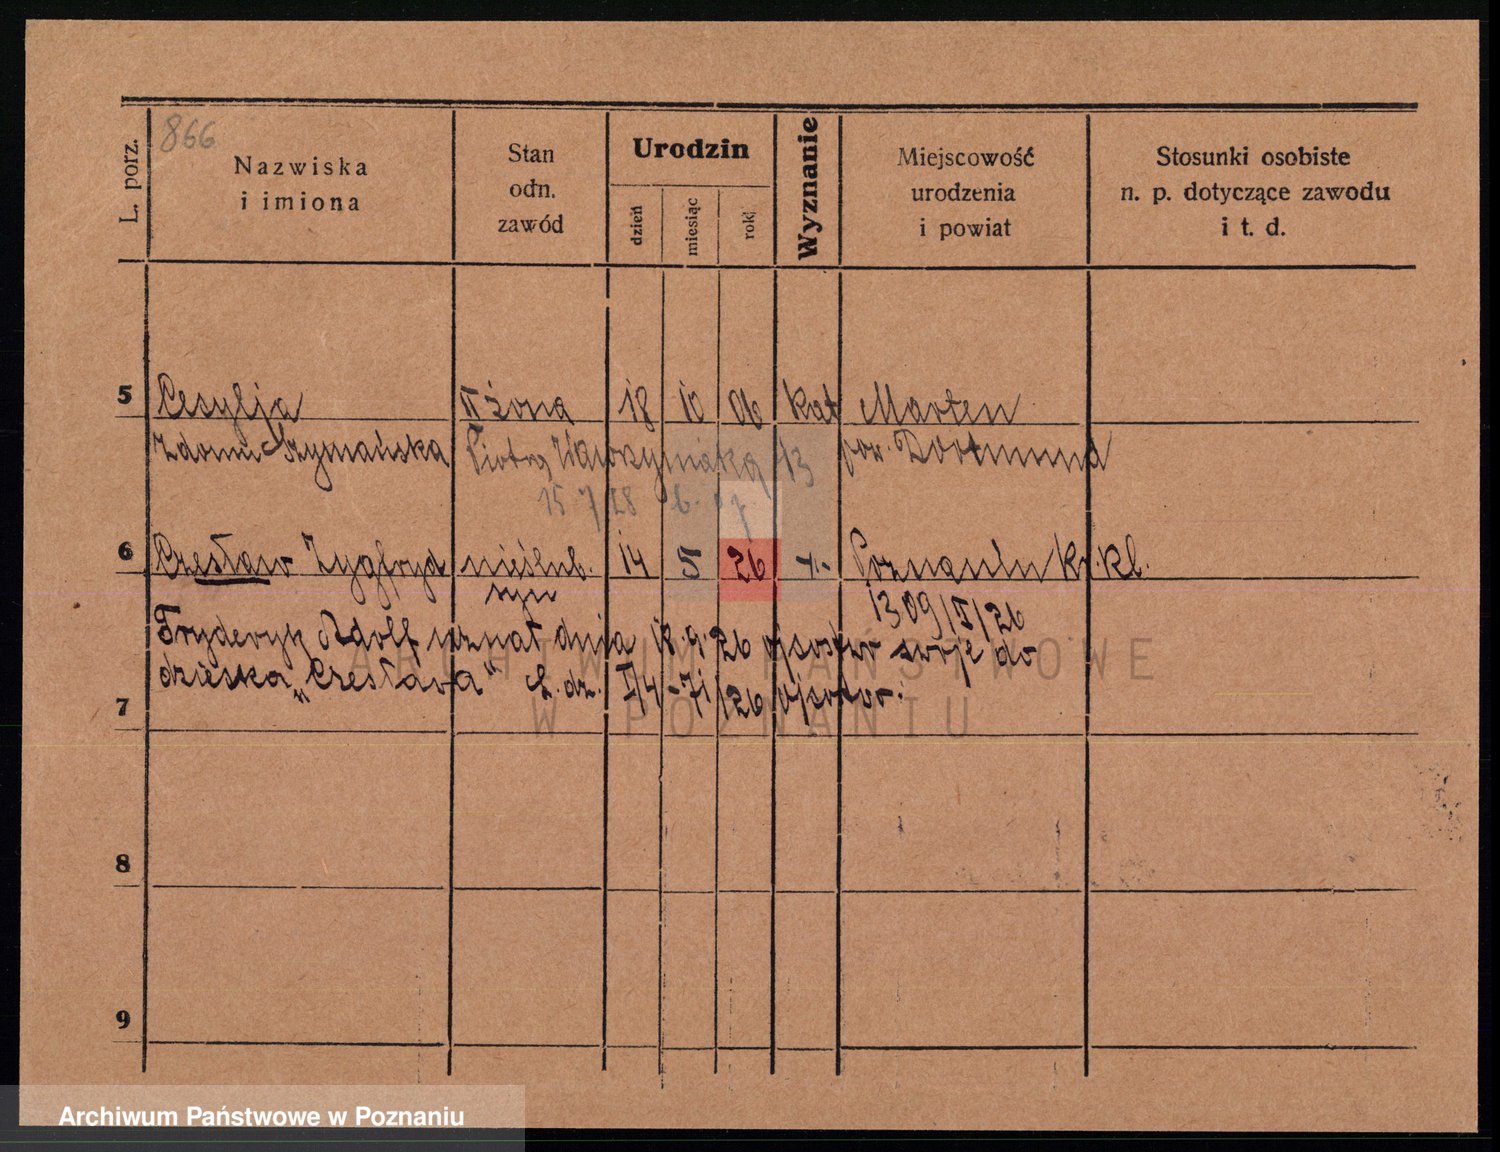 866
L. porz.
Nazwiska
i imiona
Stan
odn.
zawód
Urodzin
dzień
miesiąc
rok
Wyznanie
Miejscowość
urodzenia
i powiat
Stosunki osobiste
n. p. dotyczące zawodu
i t. d.
5 Cesylja żona 18 10 06 kat Marten
Zdomu Szymańska Piotra Wawrzyniaka 13 pow. Dortmund
15.7.28
6 Czesław Zygfryd nieślub. 14 5 26 -"- Poznań Kr. kl.
syn 1309/I/26
Fryderyk Adolf uznał dnia 18.9.26 ojcostwo swoje do
dziecka „Czesława" L. dz. I/4 -71/26 ojcostw.
7
8
9
ARCHIWUM PAŃSTWOWE
W POZNANIU
Archiwum Państwowe w Poznaniu